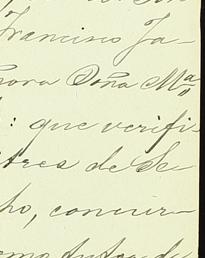 Francisco Ja-
ñora Doña Ma
: que verifi
tres de Se
ho, concur-